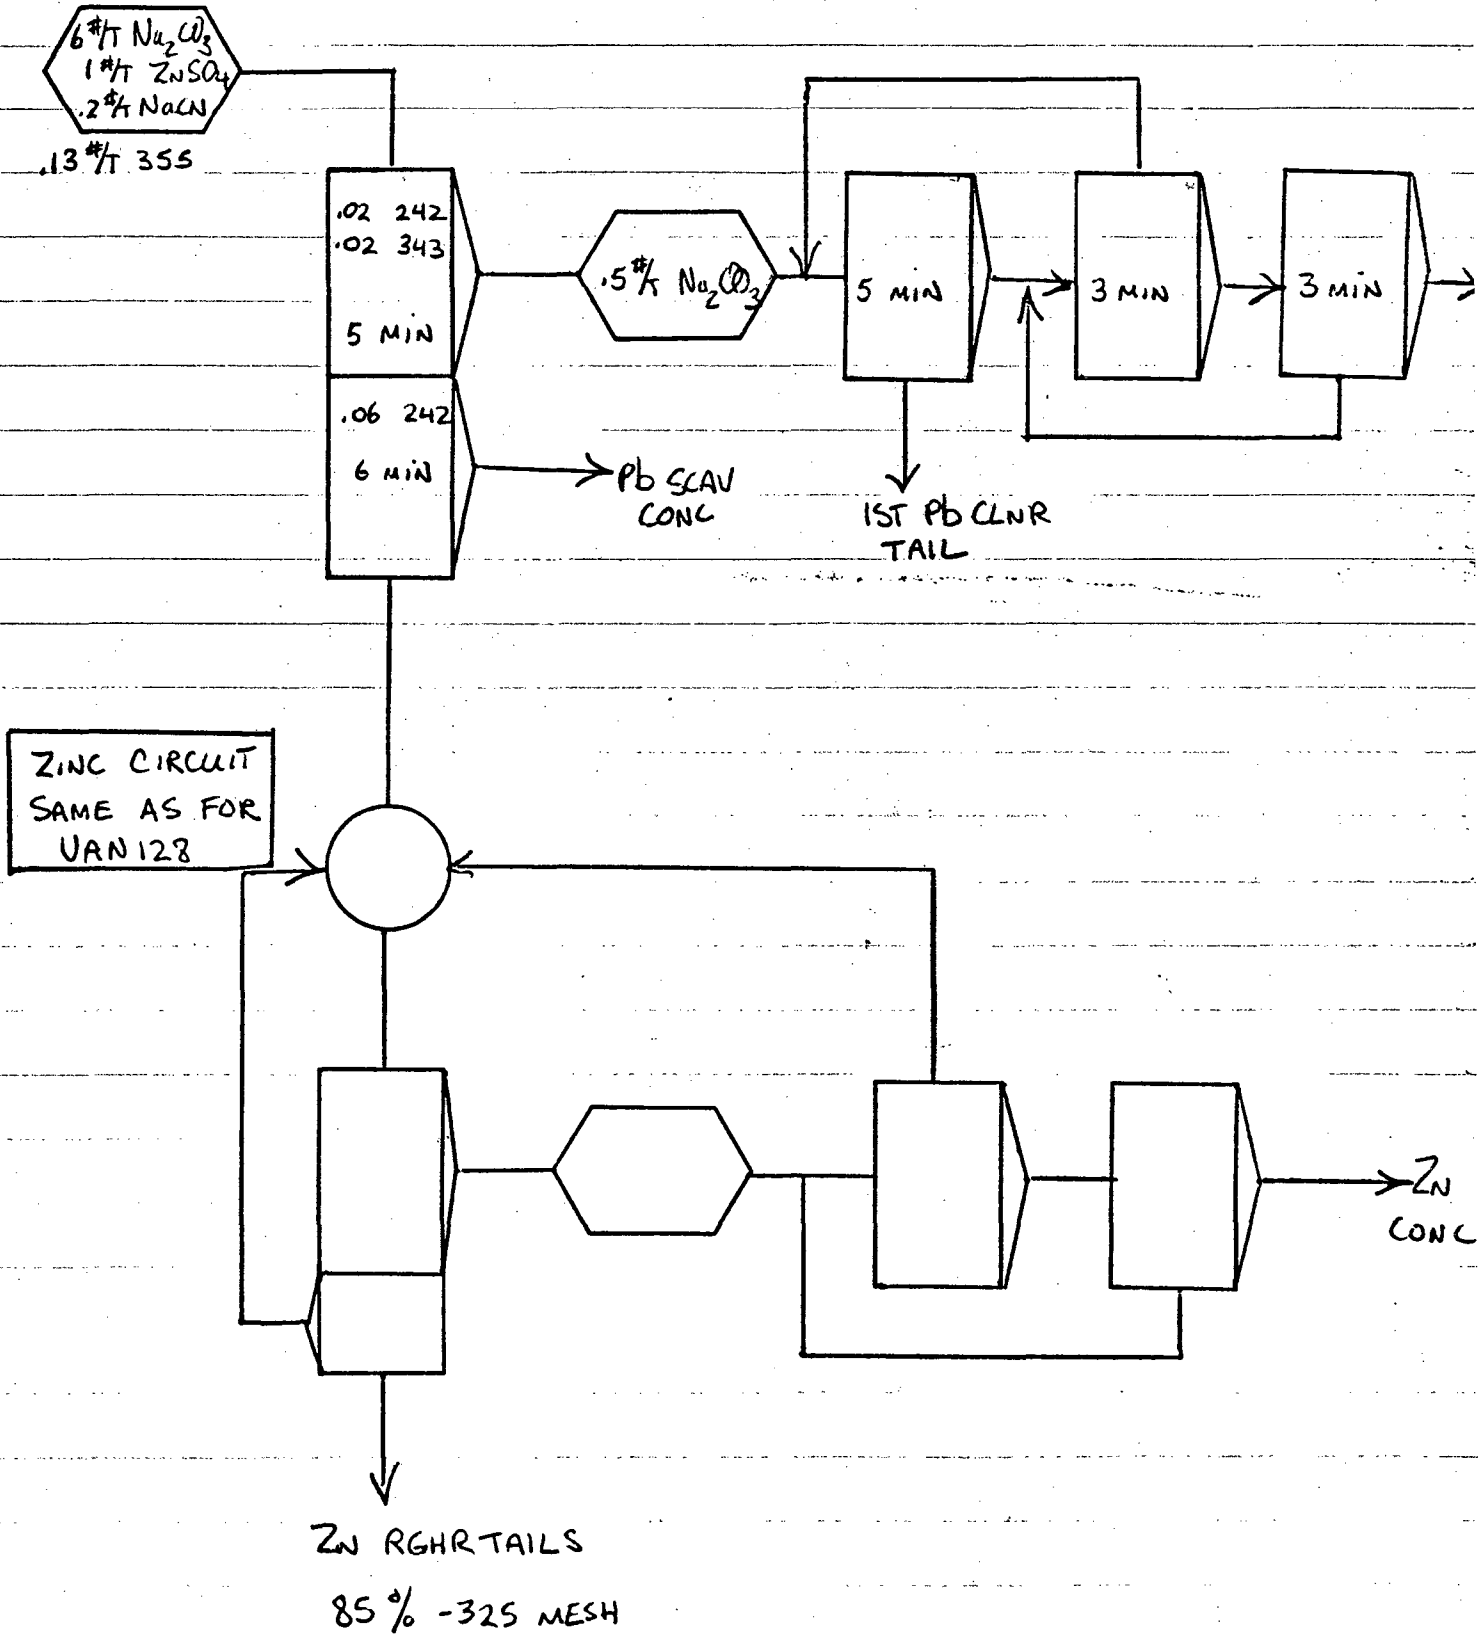 6 #/T Na2CO3
1 #/T ZnSO4
.2 #/T NaCN
.13 #/T 355
.02 242
.02 343
5 MIN
.06 242
6 MIN
.5 #/T Na2CO3
5 MIN
3 MIN
3 MIN
Pb SCAV
CONC
1ST Pb CLNR
TAIL
ZINC CIRCUIT
SAME AS FOR
VAN 128
ZN
CONC
ZN RGHR TAILS
85% -325 MESH